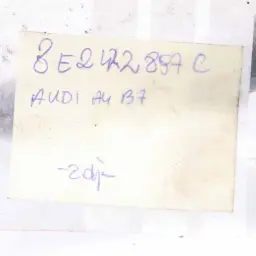 8E2422857C
AUDI A4 B7
-2dj-